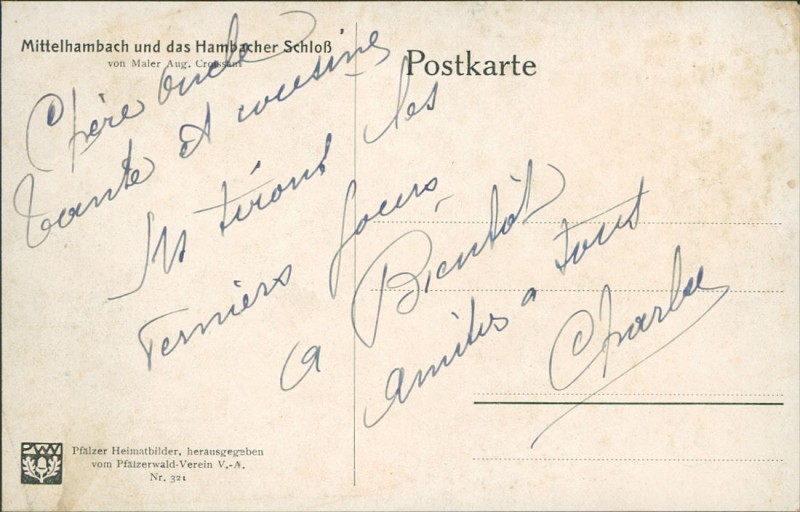 Mittelhambach und das Hambacher Schloß
von Maler Aug. Croissant
Postkarte
Chère oncle
tante et cousine
tirons les
Terniers jours
a Bientôt
amités a tout
Charles
Pfälzer Heimatbilder, herausgegeben
vom Pfälzerwald-Verein V.-A.
Nr. 321
PWV